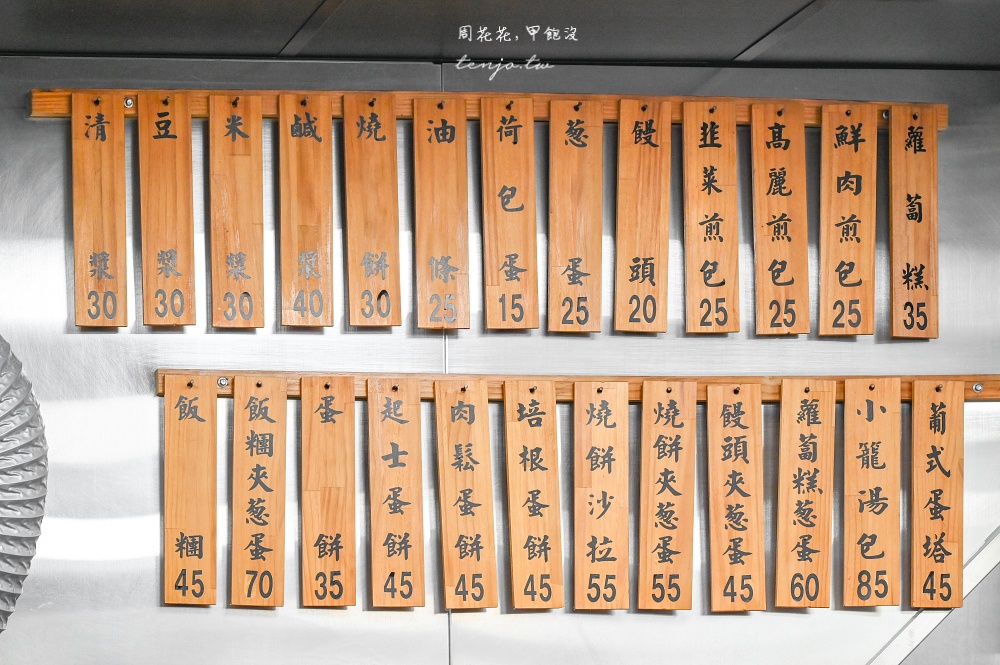 周花花,甲飽沒
tenjo.tw
清漿30
豆漿30
米漿30
鹹漿40
燒餅30
油條25
荷包蛋15
葱蛋25
饅頭20
韭菜煎包25
高麗煎包25
鮮肉煎包25
蘿蔔糕35
飯糰45
飯糰夾葱蛋70
蛋餅35
起士蛋餅45
肉鬆蛋餅45
培根蛋餅45
燒餅沙拉55
燒餅夾葱蛋55
饅頭夾葱蛋45
蘿蔔糕葱蛋60
小籠湯包85
葡式蛋塔45